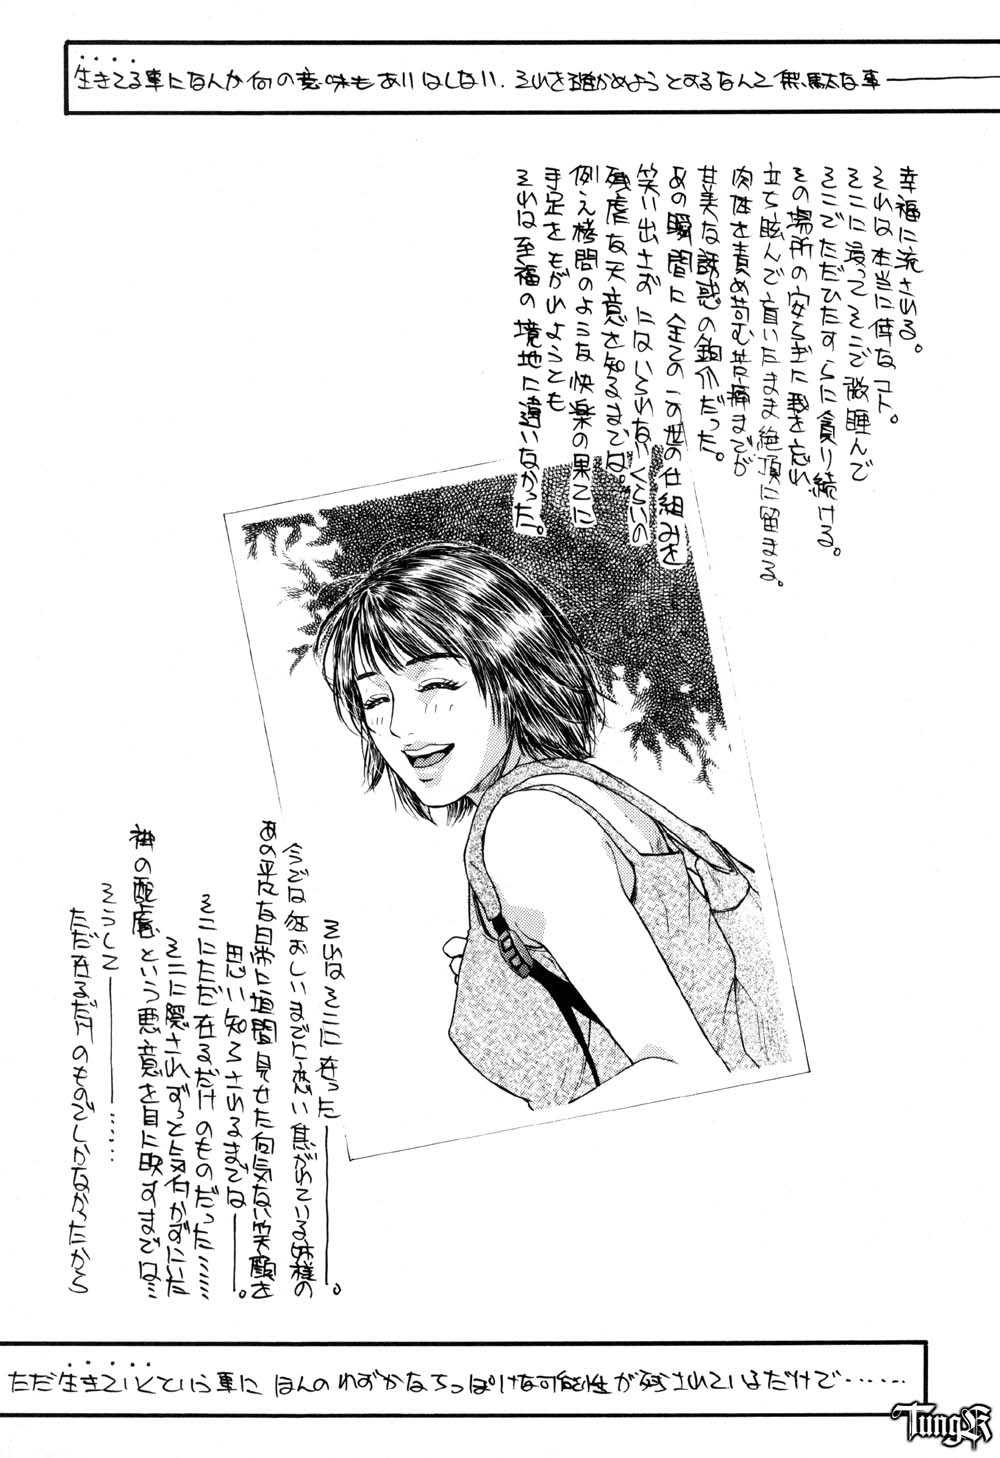 生きてる事になんか何の意味もありはしない.それを確かめようとするなんて無駄な事———
幸福に流される。
それは本当に倖なコト。
そこに浸ってそこで微睡んで
そこでただひたすらに貪り続ける。
その場所の安らぎに我を忘れ
立ち眩んで盲いたまま絶頂に留まる。
肉体を責め苛む苦痛までが
甘美な誘惑の鉤爪だった。
あの瞬間に全てのこの世の仕組みを
笑い出さおにないられないくらいの
残虐な天意を知るまでは。
例え拷問のような快楽の果てに
手足をもがれようとも
それは至福の境地に違いなかった。
それはそこに在った———。
今では狂おしいまでに恋い焦がれている姉様の
あの平凡な日常に垣間見せた何気ない笑顔を
思い知らされるまでは——。
そこにただ在るだけのものだった……
そこに隠されずっと気付かずにいた
神の配慮という悪意を目に映すまでは…
そうして———……
ただ在るだけのものでしかなかったから
ただ生きていくという事に ほんのわずかなちっぽけな可能性が残されているだけで……
TungK